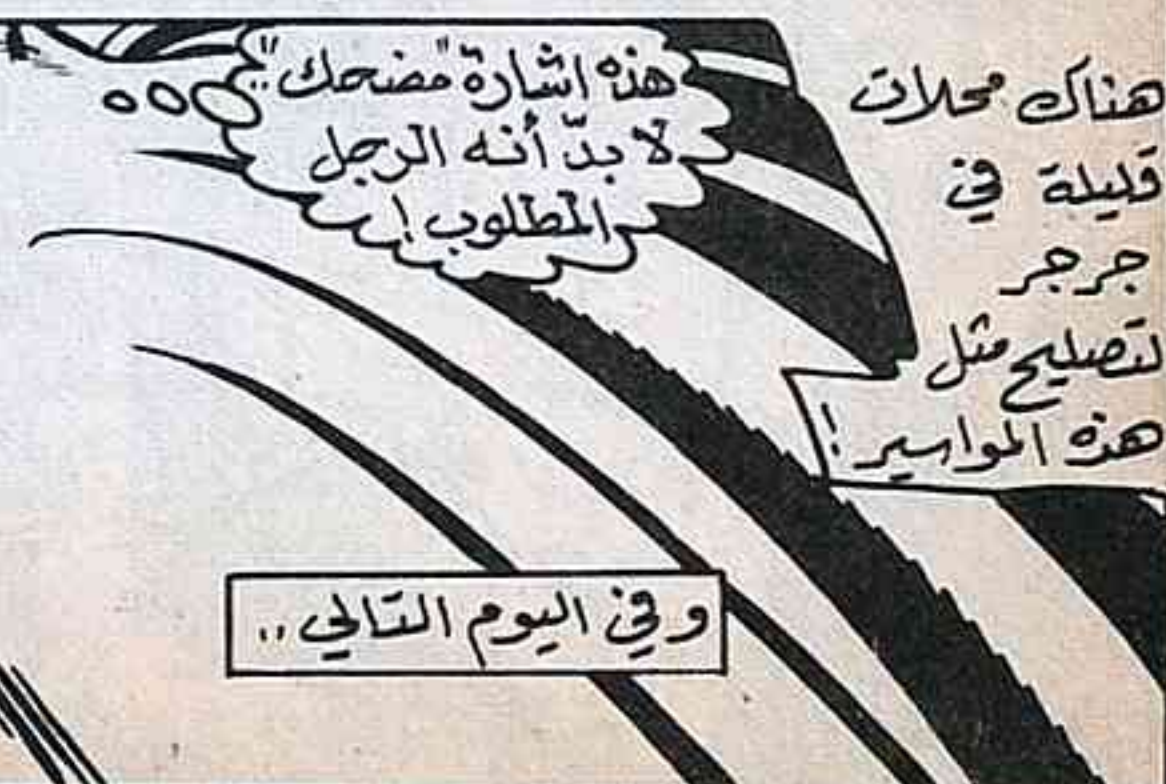 هناك محلات
قليلة في
جرجر
لتصليح مثل
هذه المواسير!
هذه اشارة "مضحك"..
لا بدّ أنه الرجل
المطلوب!
وفي اليوم التالي..